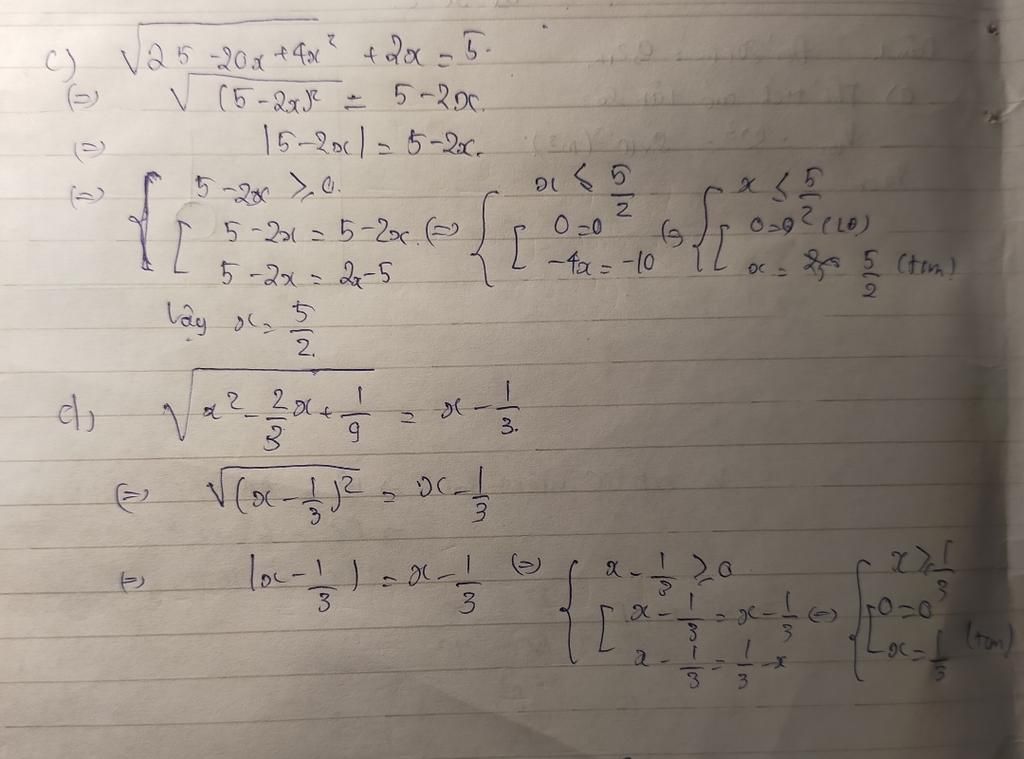 c) √(25 - 20x + 4x²) + 2x = 5.
(=) √(5 - 2x)² = 5 - 2x.
(=) |5 - 2x| = 5 - 2x.
(=) { 5 - 2x ≥ 0. [ 5 - 2x = 5 - 2x. 5 - 2x = 2x - 5 (=) { x ≤ 5/2 [ 0 = 0 -4x = -10 (=) { x ≤ 5/2 [ 0 = 0 (LĐ) x = 5/2 (tm)
Vậy x = 5/2.
d) √(x² - 2/3x + 1/9) = x - 1/3.
(=) √(x - 1/3)² = x - 1/3
(=) |x - 1/3| = x - 1/3 (=) { x - 1/3 ≥ 0 [ x - 1/3 = x - 1/3 x - 1/3 = 1/3 - x (=) { x ≥ 1/3 [ 0 = 0 x = 1/3 (tm)